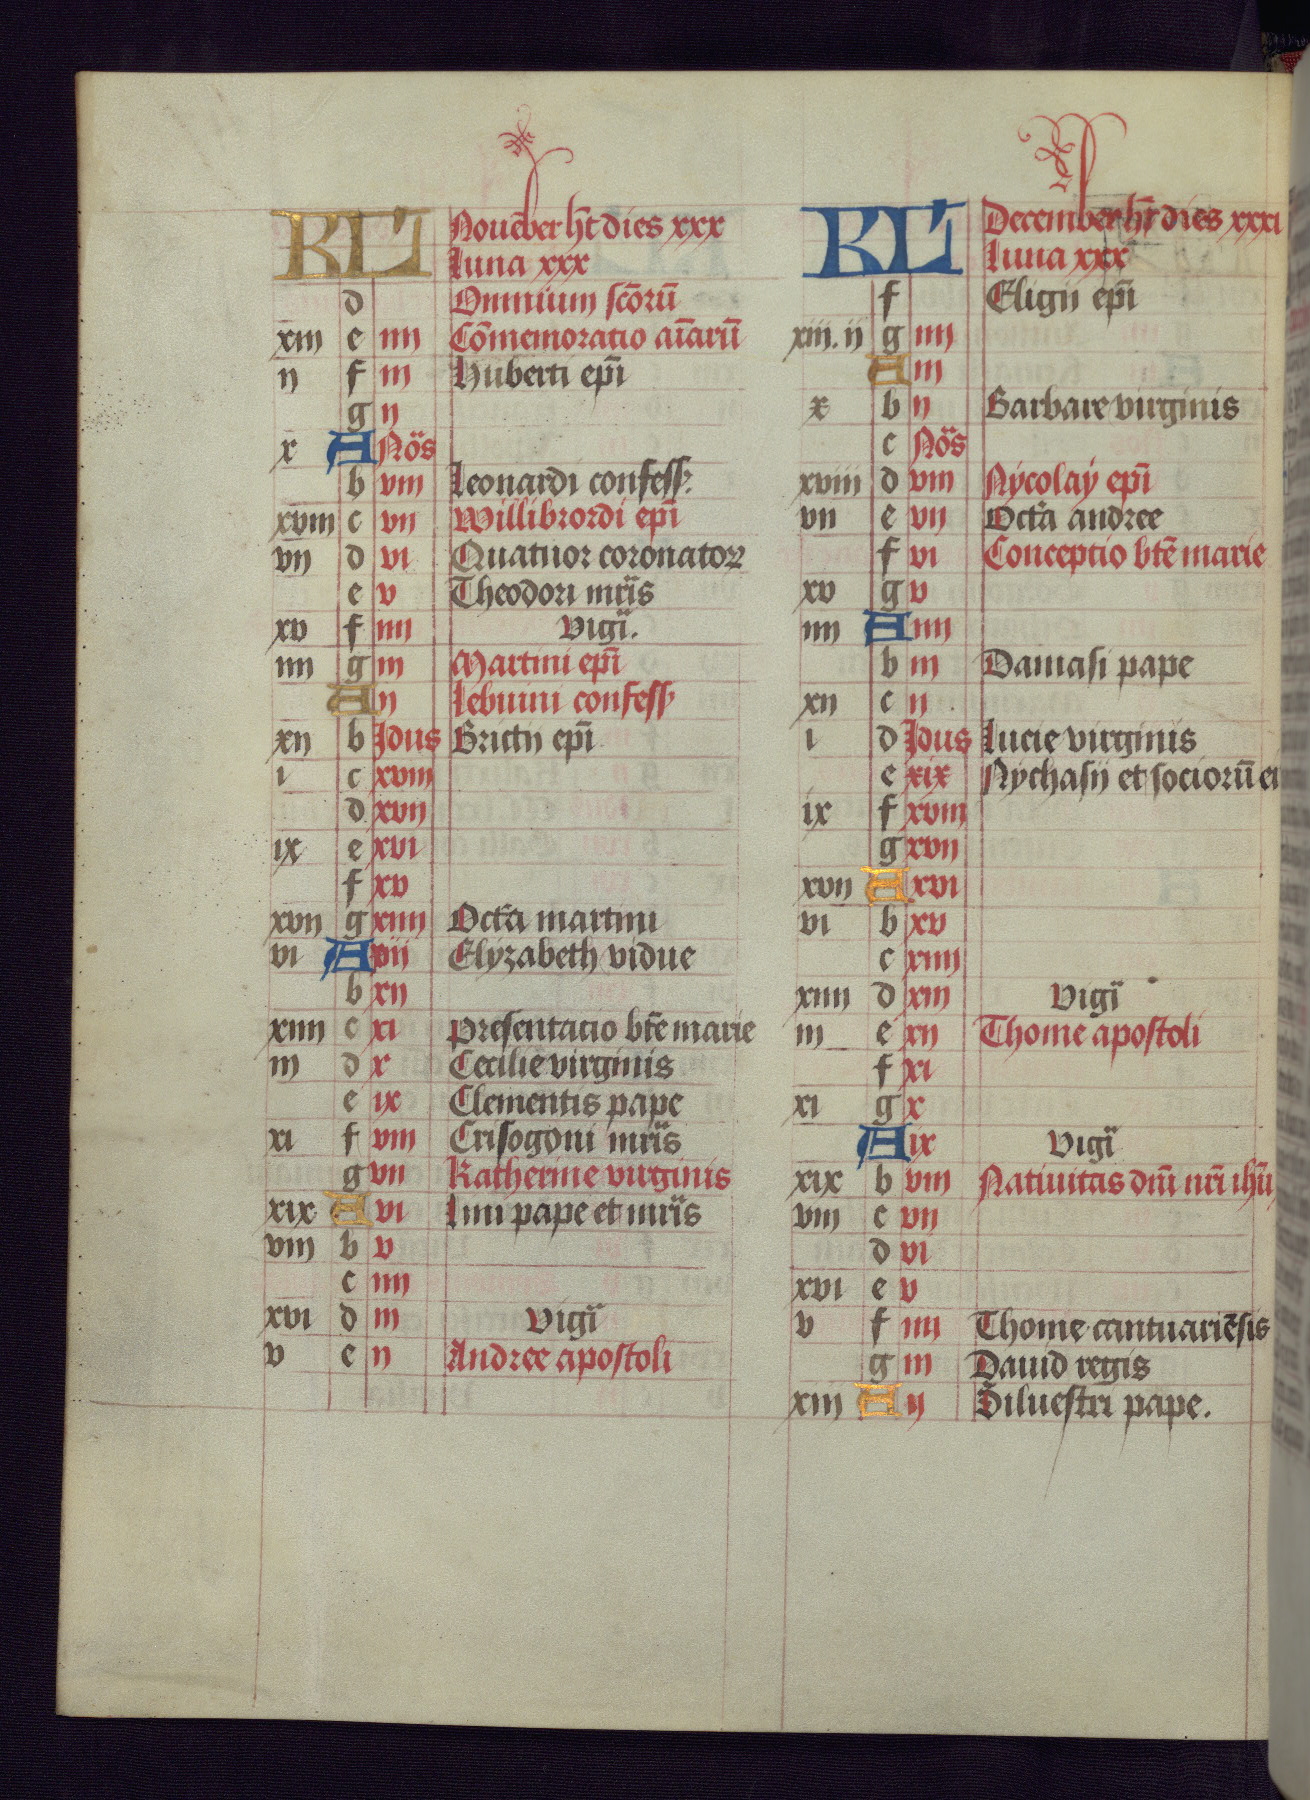 KL Nouēber hꝫt dies xxx
luna xxx
d Omnium scōrū
xiii e iiii Cōmemoratio aīarū
ii f iii Huberti epī
g ii
x A Nōs
b viii Leonardi confess
xviii c vii Willibrordi epī
vii d vi Quatuor coronatoꝝ
e v Theodori mrīs
xv f iiii vigī.
iiii g iii Martini epī
A ii Lebuini confess
xii b Idus Brictii epī
i c xviii
d xvii
ix e xvi
f xv
xvii g xiiii Octā martini
vi A xiii Elyzabeth vidue
b xii
xiiii c xi presentatio btē marie
iii d x Cecilie virginis
e ix Clementis pape
xi f viii Crisogoni mrīs
g vii Katherine virginis
xix A vi Lini pape et mrīs
viii b v
c iiii
xvi d iii vigī
v e ii Andree apostoli
KL December hꝫt dies xxxi
luna xxx
f Eligii epī
xiii. ii g iiii
A iii
x b ii Barbare virginis
c Nōs
xviii d viii Nycolay epī
vii e vii Octā andree
f vi Conceptio btē marie
xv g v
iiii A iiii
b iii Damasi pape
xii c ii
i d Idus Lucie virginis
e xix Nychasii et sociorū ei
ix f xviii
g xvii
xvii A xvi
vi b xv
c xiiii
xiiii d xiii vigī
iii e xii Thome apostoli
f xi
xi g x
A ix vigī
xix b viii Natiuitas dnī nrī ihū
viii c vii
d vi
xvi e v
v f iiii Thome cantuariēsis
g iii Dauid regis
xiii A ii Siluestri pape.